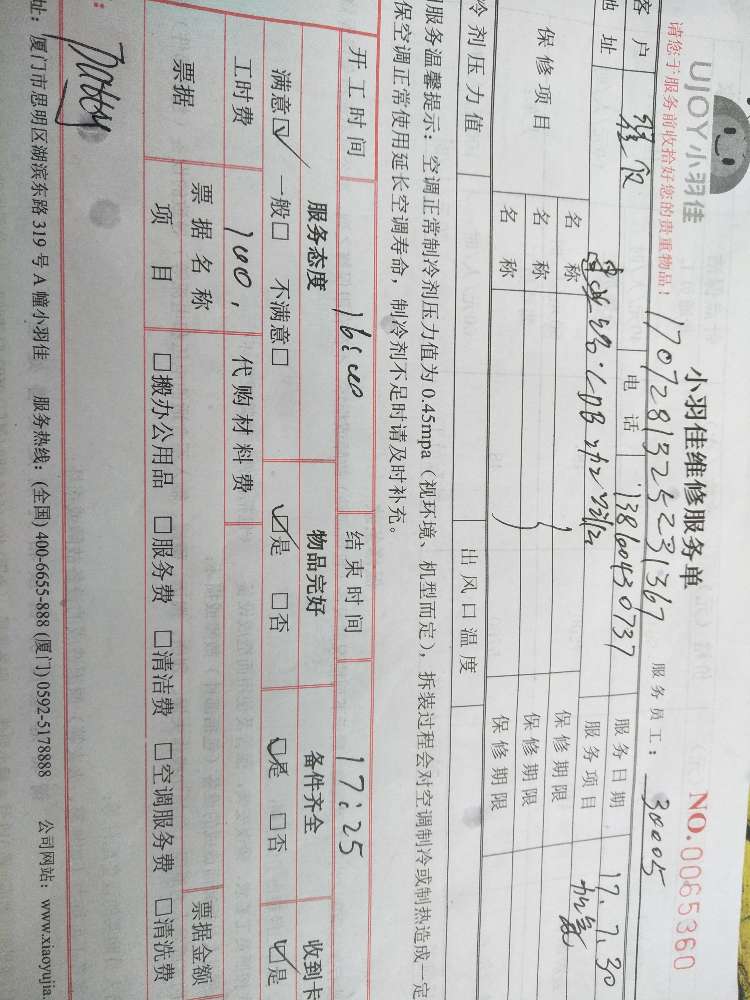 UJOY小羽佳
小羽佳维修服务单
NO.0065360
请您于服务前收拾好您的贵重物品!
17072813252231367
服务员工: 30005
客户
电话 13860430737
服务日期 17.7.30
地址
服务项目 加氟
保修项目 名称 保修期限
名称 保修期限
名称 保修期限
冷剂压力值 出风口温度
服务温馨提示: 空调正常制冷剂压力值为 0.45mpa (视环境、机型而定), 拆装过程会对空调制冷或制热造成一定
保空调正常使用延长空调寿命, 制冷剂不足时请及时补充。
开工时间 16:00 结束时间 17:25
服务态度 物品完好 备件齐全 收到卡
满意☑ 一般□ 不满意□ ☑是 □否 ☑是 □否 ☑是
工时费 100. 代购材料费
票据 票据名称 票据金额
项目 □搬办公用品 □服务费 □清洁费 □空调服务费 □清洗费
址: 厦门市思明区湖滨东路 319 号 A 幢小羽佳 服务热线: (全国) 400-6655-888 (厦门) 0592-5178888 公司网站: www.xiaoyujia.